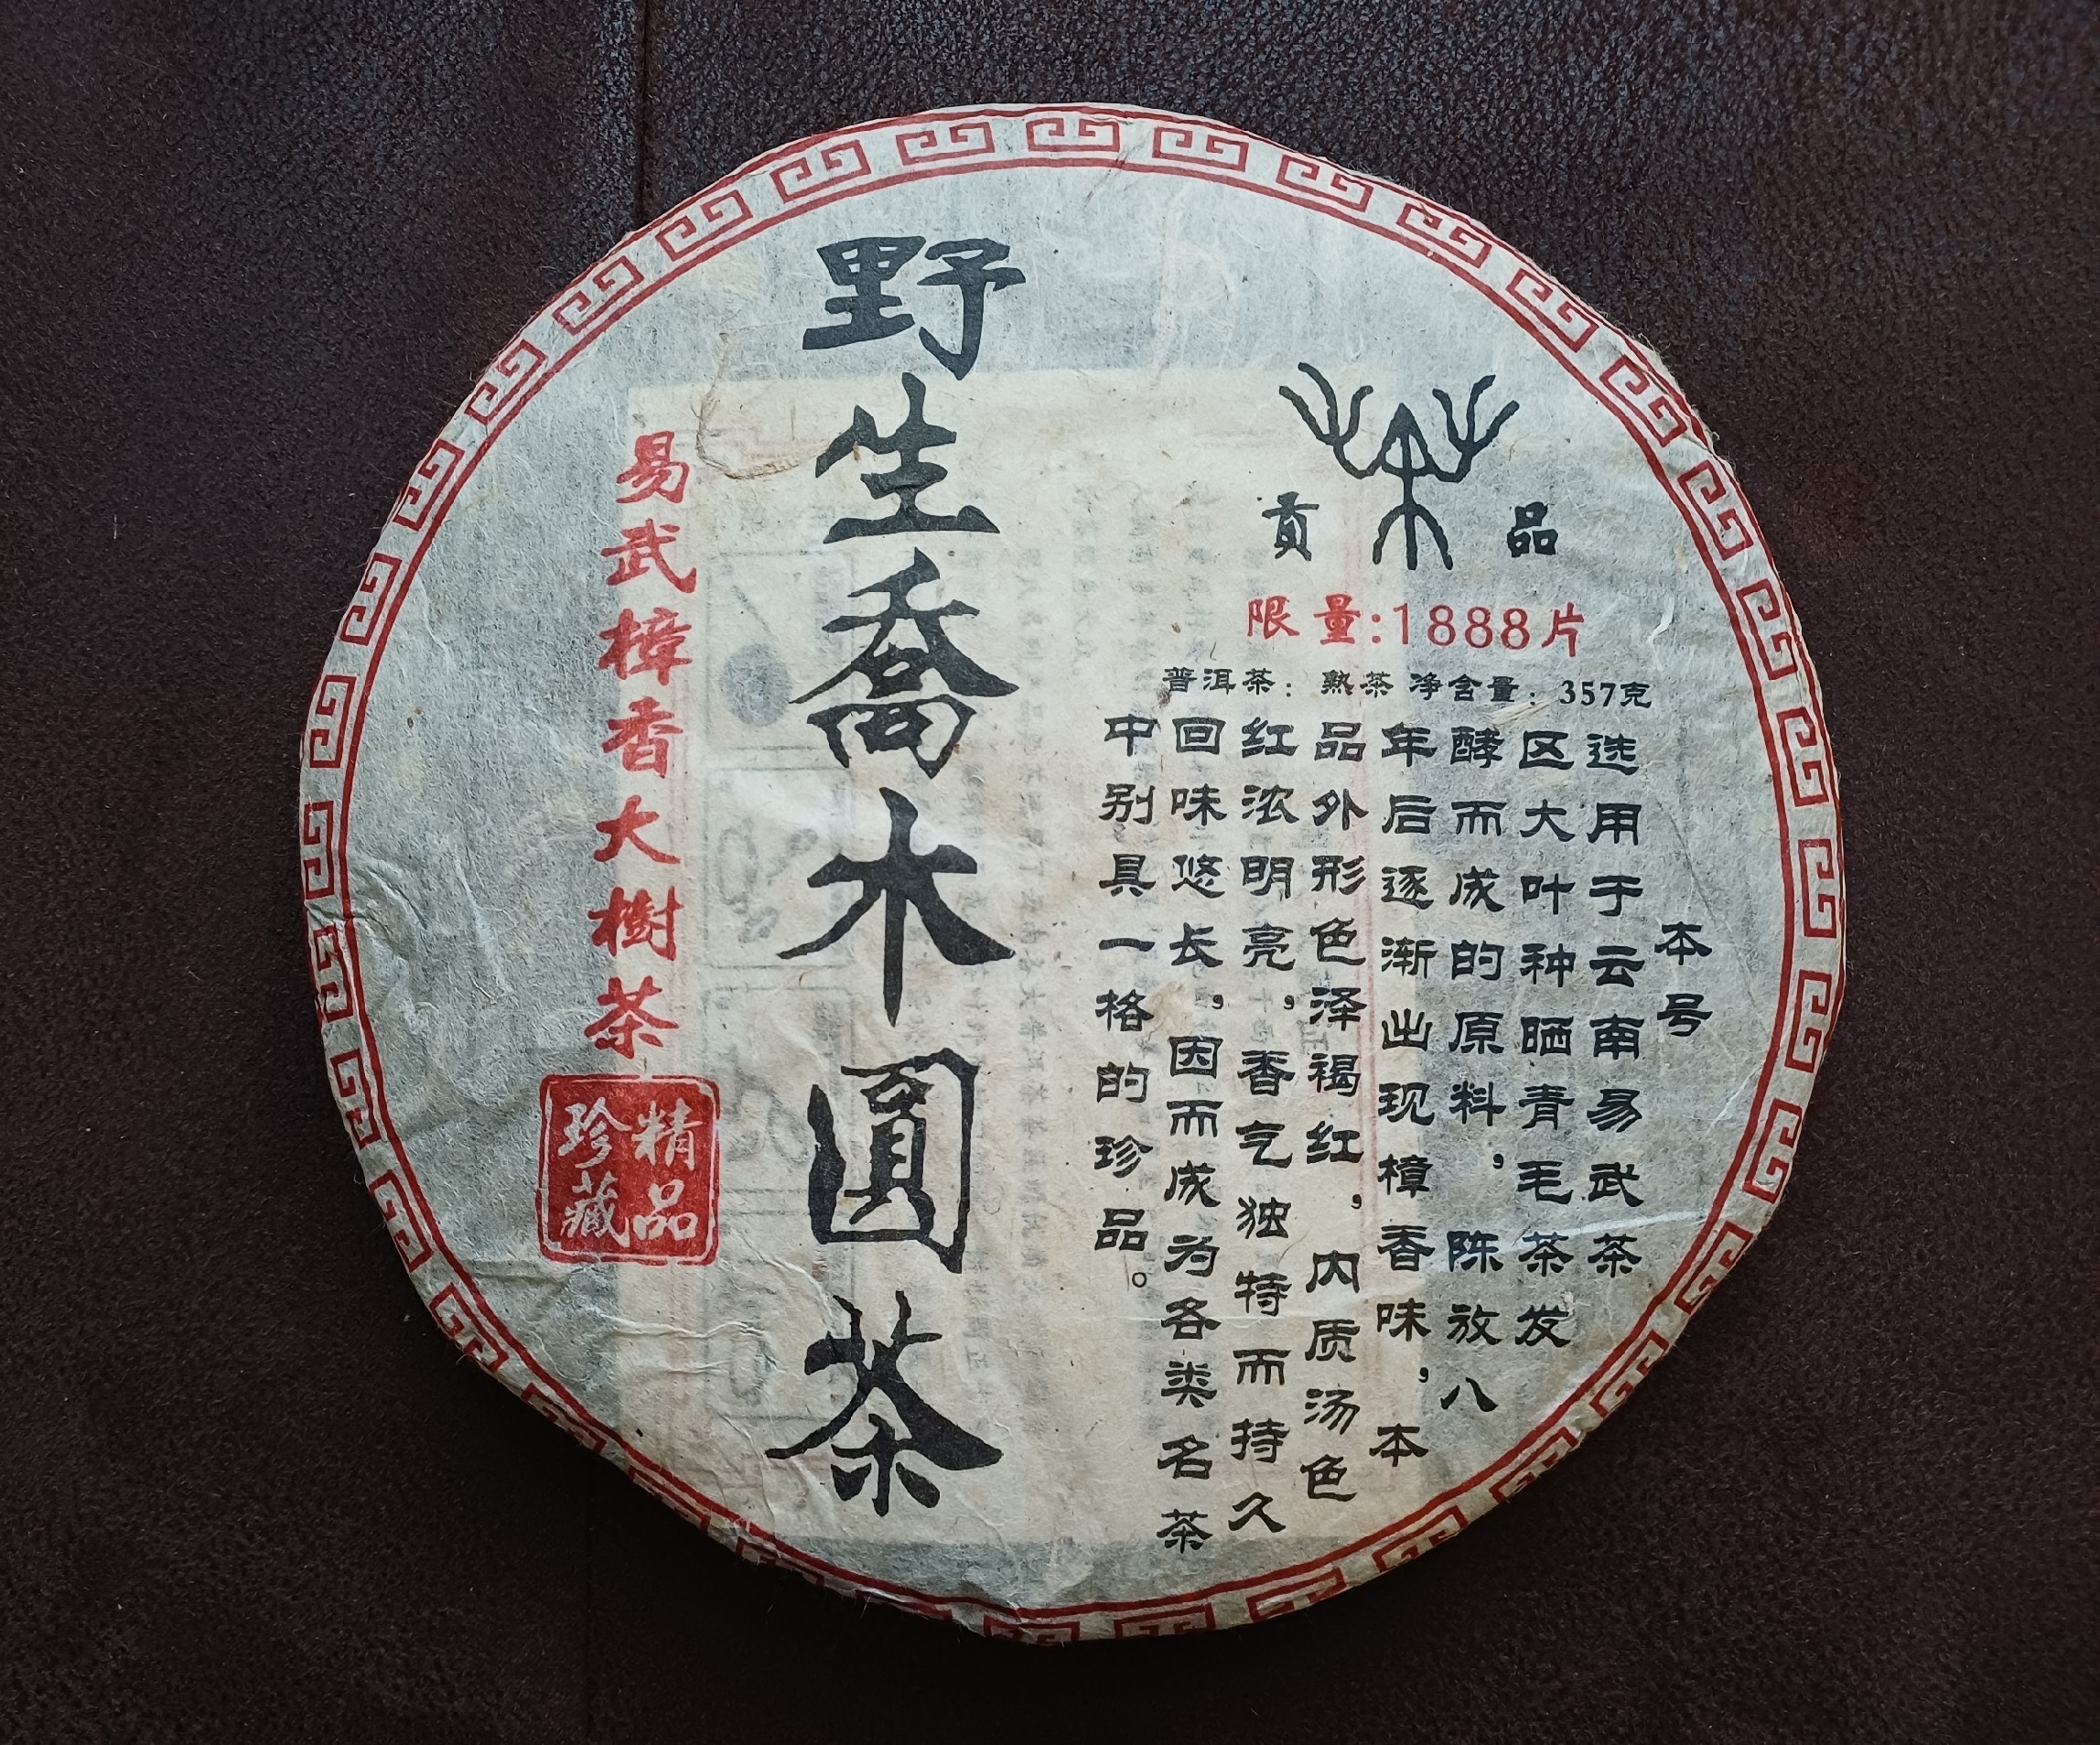 贡品
限量:1888片
普洱茶：熟茶 净含量：357克
本号
选用于云南易武茶
区大叶种晒青毛茶发
酵而成的原料，陈放八
年后逐渐出现樟香味，本
品外形色泽褐红，内质汤色
红浓明亮，香气独特而持久
回味悠长，因而成为各类名茶
中别具一格的珍品。
野生喬木圓茶
易武樟香大樹茶
精品
珍藏